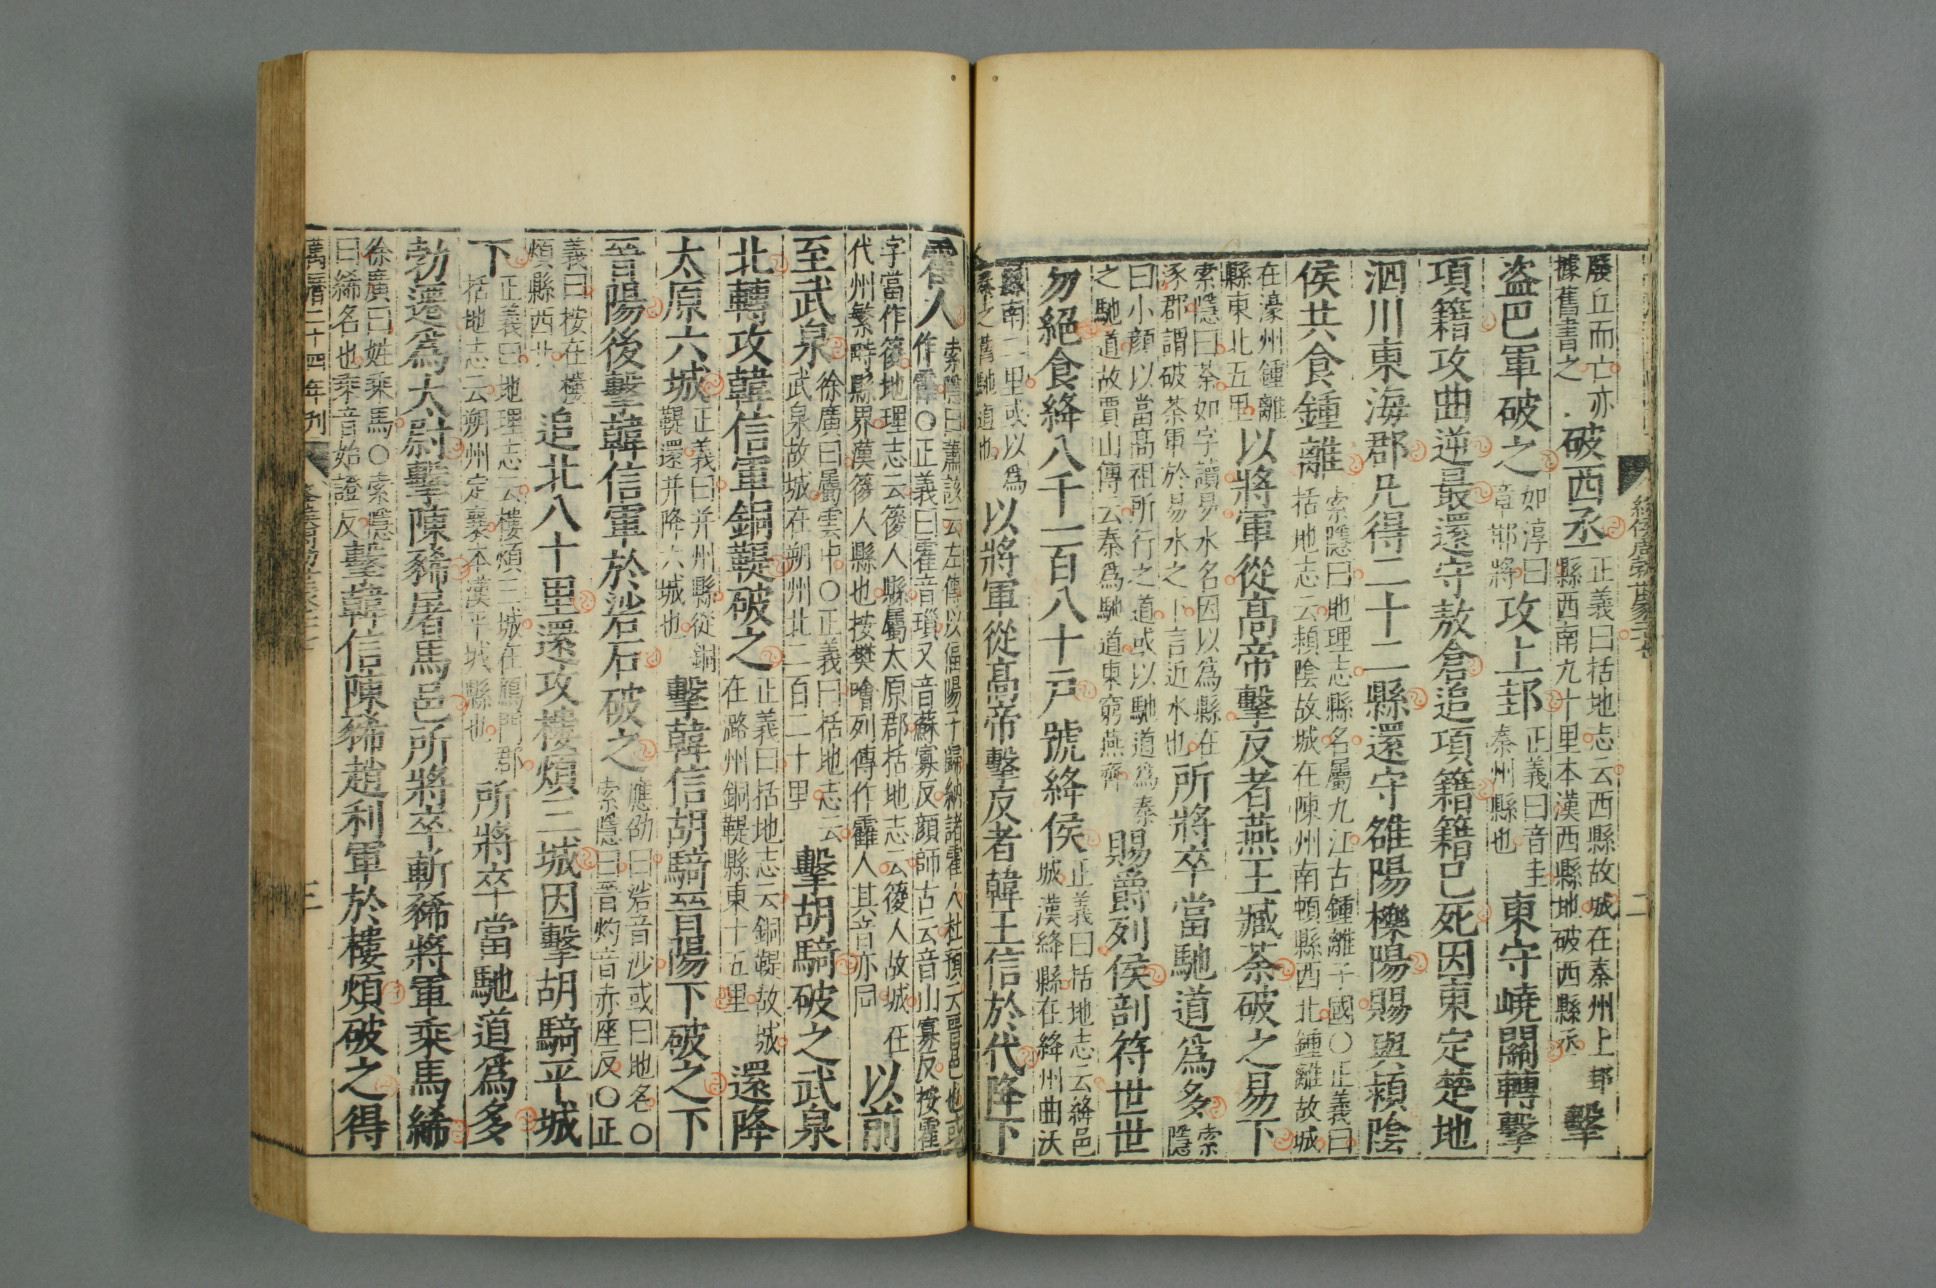 廢丘而亡亦據舊書之破西丞正義曰括地志云西縣故城在秦州上邽縣西南九十里本漢西縣地破西縣丞擊
盗巴軍破之如淳曰章邯將攻上邽正義曰音圭秦州縣也東守嶢關轉擊
項籍攻曲逆最還守敖倉追項籍籍已死因東定楚地
泗川東海郡凡得二十二縣還守雒陽櫟陽賜與潁陰
侯共食鍾離索隱曰地理志縣名屬九江古鍾離子國〇正義曰括地志云潁陰故城在陳州南頓縣西北鍾離故城
在濠州鍾離縣東北五里以將軍從高帝擊反者燕王臧荼破之易下
索隱曰荼如字讀易水名因以為縣在涿郡謂破荼軍於易水之下言近水也所將卒當馳道為多索隱
曰小顔以當高祖所行之道或以馳道為秦之馳道故賈山傳云秦為馳道東窮燕齊賜爵列侯剖符世世
勿絕食絳八千一百八十户號絳侯正義曰括地志云絳邑城漢絳縣在絳州曲沃
縣南二里或以為秦之舊馳道也以將軍從高帝擊反者韓王信於代降下
霍人索隱曰蕭該云左傳以偪陽子歸納諸霍人杜預云晉邑也或作靃〇正義曰霍音瑣又音蘇寡反顔師古云音山寡反按霍
字當作筱地理志云筱人縣屬太原郡括地志云筱人故城在代州繁畤縣界漢筱人縣也按樊噲列傳作靃人其音亦同以前
至武泉徐廣曰屬雲中〇正義曰括地志云武泉故城在朔州北二百二十里擊胡騎破之武泉
北轉攻韓信軍銅鞮破之正義曰括地志云銅鞮故城在潞州銅鞮縣東十五里還降
太原六城正義曰并州縣從銅鞮還并降六城也擊韓信胡騎晉陽下破之下
晉陽後擊韓信軍於硰石破之應劭曰硰音沙或曰地名〇索隱曰晉灼音赤座反〇正
義曰按在樓煩縣西北追北八十里還攻樓煩三城因擊胡騎平城
下正義曰地理志云樓煩三城在鴈門郡括地志云朔州定襄本漢平城縣也所將卒當馳道為多
勃遷為太尉擊陳豨屠馬邑所將卒斬豨將軍乘馬絺
徐廣曰姓乘馬〇索隱曰絺名也乘音始證反擊韓信陳豨趙利軍於樓煩破之得
萬曆二十四年刊
三